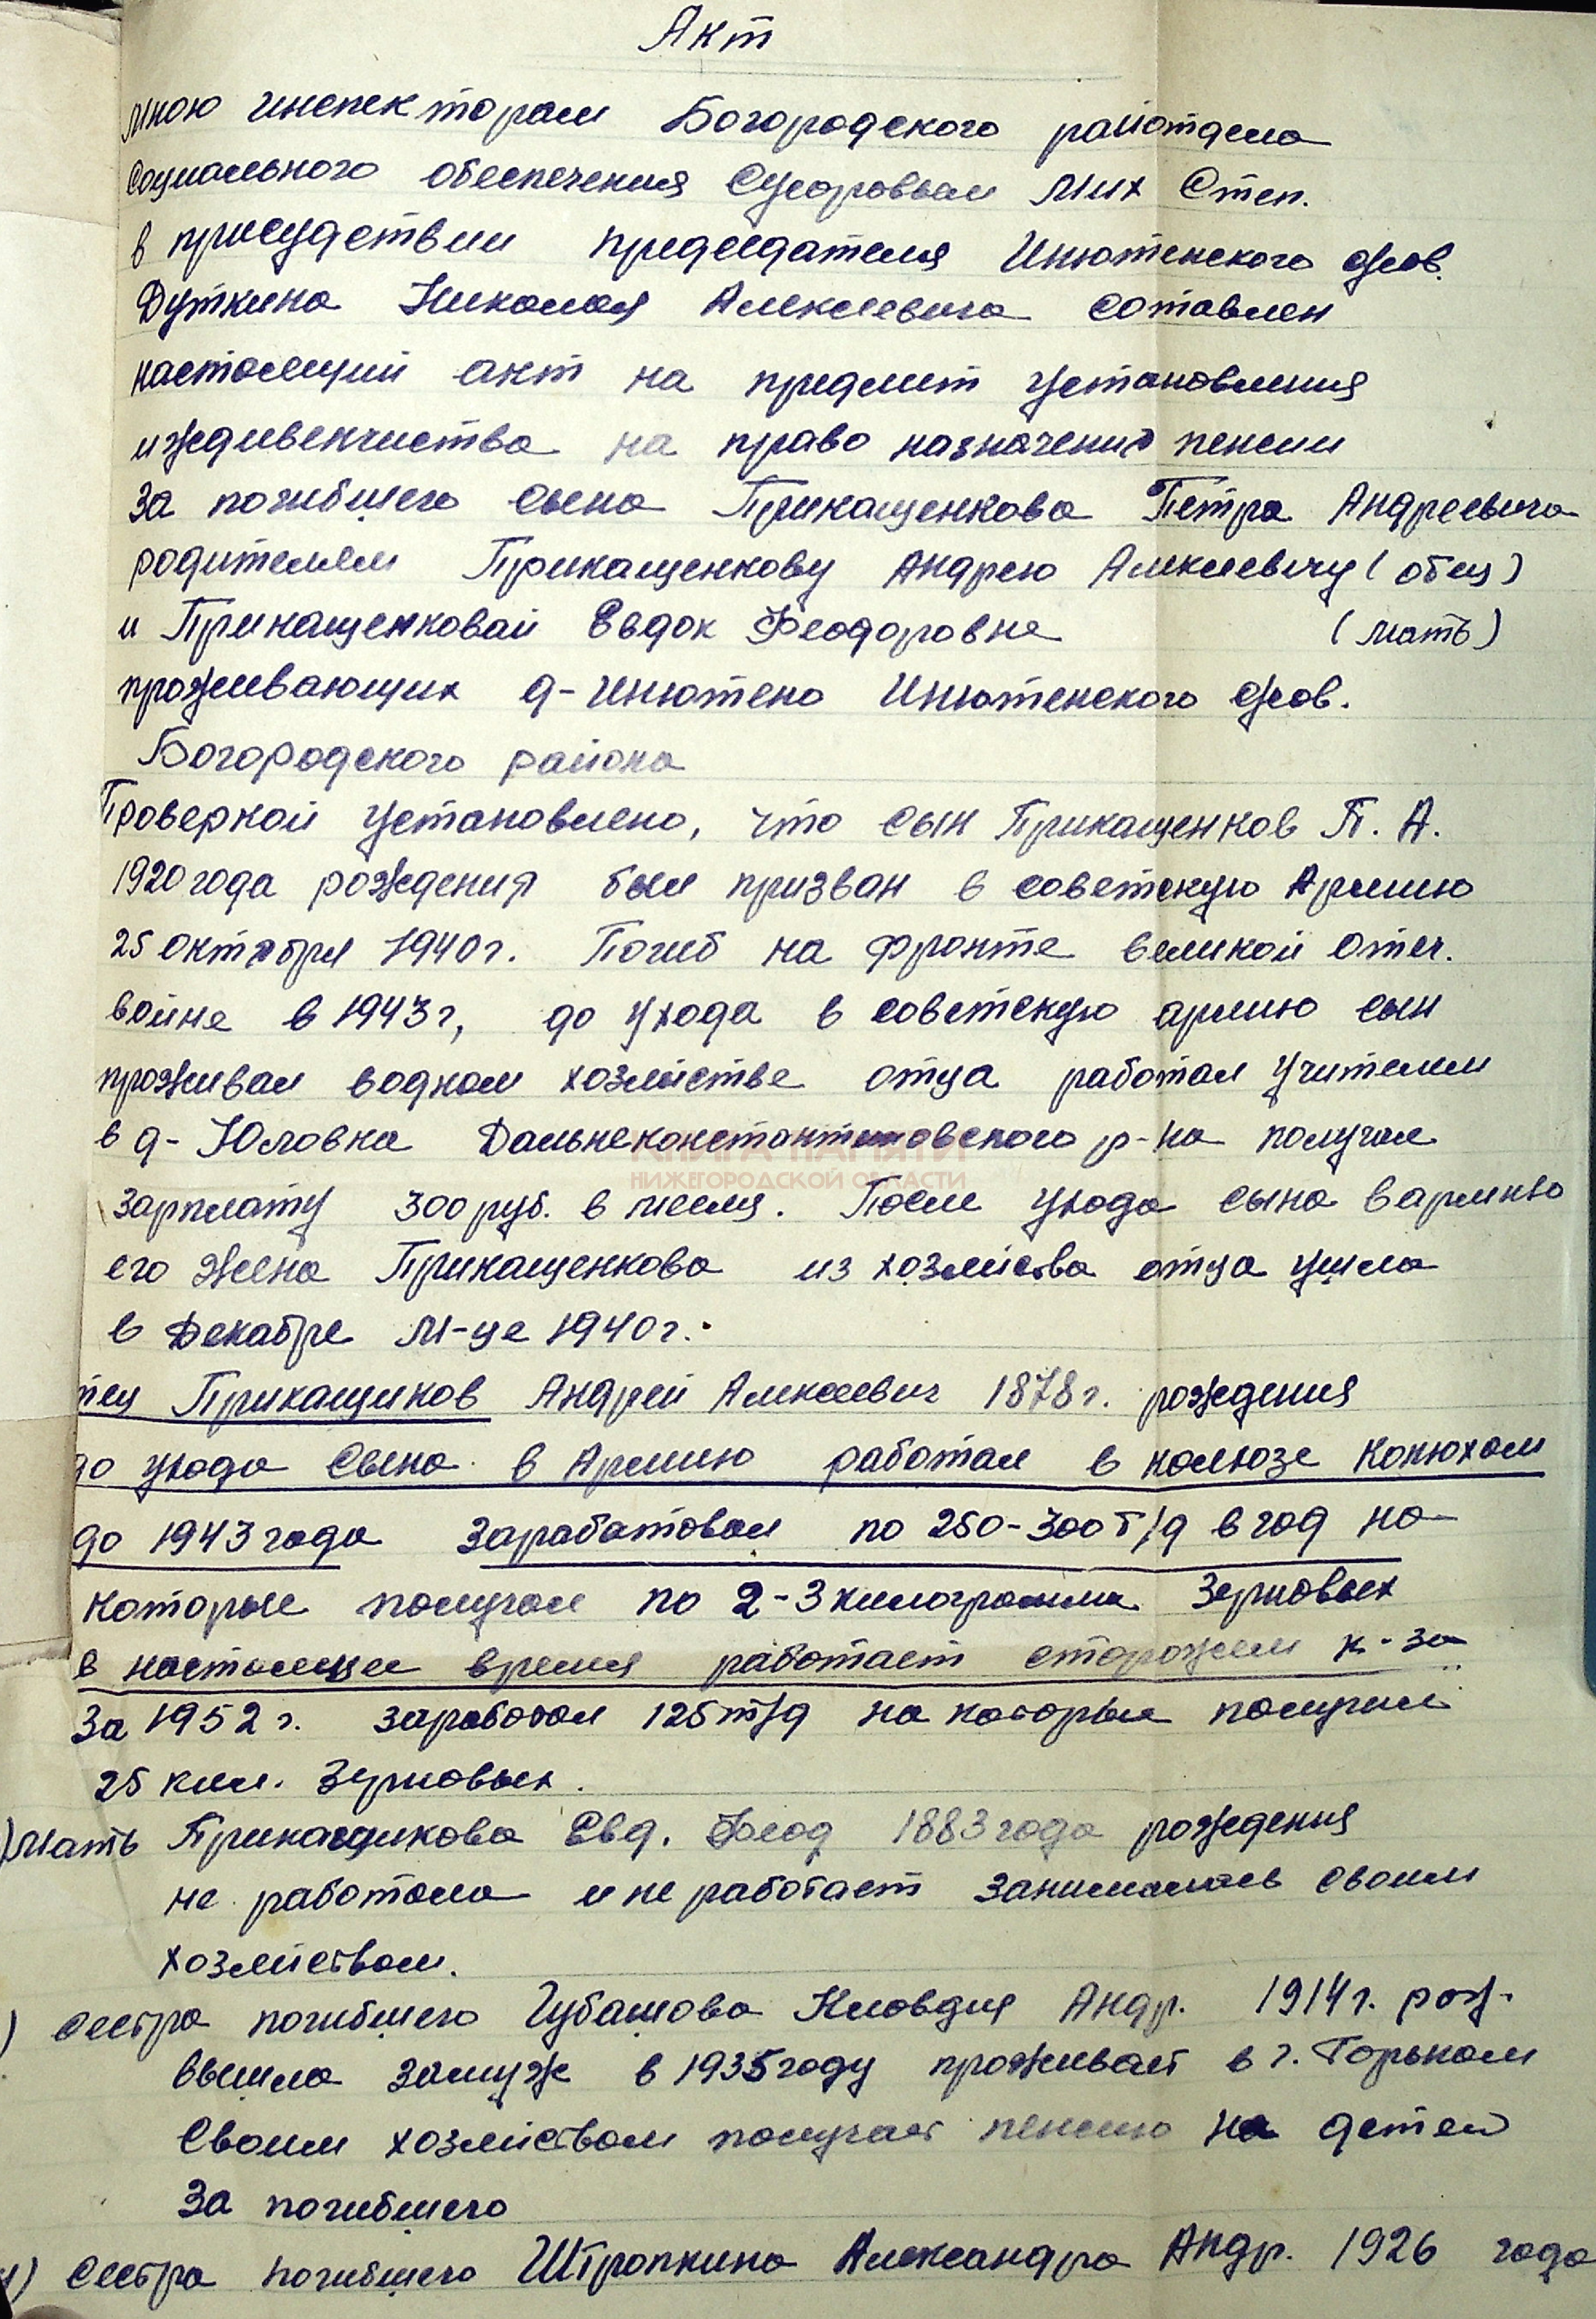 Акт
Мною инспектором Богородского райотдела
Социального обеспечения Суворовым Мих Степ.
в присудствии председателя Инютенского с/сов.
Дуткина Николая Алексеевича составлен
настоящий акт на предмет установления
иждивенчиства на право назначения пенсии
За погибшего сына Прикащенкова Петра Андреевича
родителям Прикащенкову Андрею Алексеевичу (отец)
и Прикащенковай Евдок Феодоровне (мать)
проживающих д-Инютено Инютенского с/сов.
Богородского района
Проверкой установлено, что сын Прикащенков П. А.
1920 года рождения был призван в советскую Армию
25 октября 1940 г. Погиб на фронте великой Отеч.
войне в 1943 г, до ухода в советскую армию сын
проживал водном хозяйстве отца работал учителем
в д-Юловка Дальнеконстантиновского р-на получал
КНИГА ПАМЯТИ
НИЖЕГОРОДСКОЙ ОБЛАСТИ
Зарплату 300 руб. в месяц. После ухода сына в армию
его жена Прикащенкова из хозяйства отца ушла
в Декабре М-це 1940 г.
тец Прикащиков Андрей Алексеевич 1878 г. рождения
до ухода Сына в Армию работал в колхозе Конюхом
до 1943 года Зарабатовал по 250-300 т/д в год на
которые получал по 2-3 килограмма Зерновых
в настоящее время работает сторожем к-за
За 1952 г. заработал 125 т/д на которые получил
25 кил. Зерновых.
) Мать Прикащикова Евд. Феод 1883 года рождения
не работала и не работает занималась своим
хозяйством.
) сестра погибшего Чубашова Клавдия Андр. 1914 г. рож-
вышла замуж в 1935 году проживает в г. Горьком
Своим хозяйством получает пенсию на детей
За погибшего
) сестра погибшего Штропкина Александра Андр. 1926 года